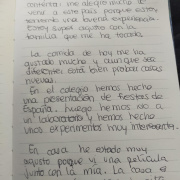 contenta, me alegro mucho de
venir a este país, porque estoy
teniendo una buena experiencia.
Estoy super agusto con la
familia que me ha tocado.
La comida de hoy me ha
gustado mucho y aunque sea
diferente está bien probar cosas
nuevas.
En el colegio hemos hecho
una presentación de fiestas de
España, luego hemos ido a
un laboratorio y hemos hecho
unos experimentos muy interesantes.
En casa he estado muy
agusto porque vi una película
junto con la mia. La casa es